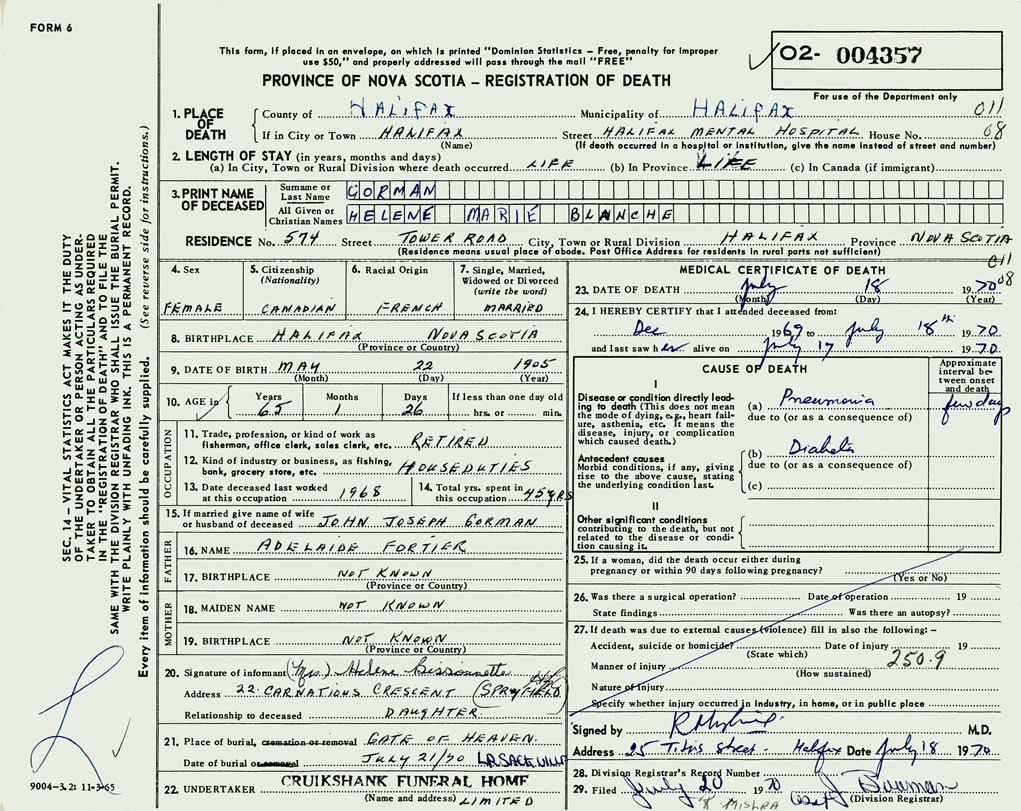 FORM 6
This form, if placed in an envelope, on which is printed "Dominion Statistics – Free, penalty for improper
use $50," and properly addressed will pass through the mail "FREE"
02- 004357
PROVINCE OF NOVA SCOTIA – REGISTRATION OF DEATH
For use of the Department only
1. PLACE OF DEATH
County of HALIFAX Municipality of HALIFAX 011
If in City or Town HALIFAX Street HALIFAX MENTAL HOSPITAL House No. 08
(Name) (If death occurred in a hospital or institution, give the name instead of street and number)
2. LENGTH OF STAY (in years, months and days)
(a) In City, Town or Rural Division where death occurred LIFE (b) In Province LIFE (c) In Canada (if immigrant)
3. PRINT NAME OF DECEASED
Surname or Last Name GORMAN
All Given or Christian Names HELENE MARIE BLANCHE
RESIDENCE No. 574 Street TOWER ROAD City, Town or Rural Division HALIFAX Province NOVA SCOTIA
(Residence means usual place of abode. Post Office Address for residents in rural parts not sufficient)
011
08
4. Sex
FEMALE
5. Citizenship
(Nationality)
CANADIAN
6. Racial Origin
FRENCH
7. Single, Married,
Widowed or Divorced
(write the word)
MARRIED
8. BIRTHPLACE HALIFAX NOVA SCOTIA
(Province or Country)
9. DATE OF BIRTH MAY 22 1905
(Month) (Day) (Year)
10. AGE in Years Months Days If less than one day old
65 1 26 hrs. or min.
OCCUPATION
11. Trade, profession, or kind of work as
fisherman, office clerk, sales clerk, etc. RETIRED
12. Kind of industry or business, as fishing,
bank, grocery store, etc. HOUSEDUTIES
13. Date deceased last worked
at this occupation 1968
14. Total yrs. spent in
this occupation 45 YRS
15. If married give name of wife
or husband of deceased JOHN JOSEPH GORMAN
FATHER
16. NAME ADELAIDE FORTIER
17. BIRTHPLACE NOT KNOWN
(Province or Country)
MOTHER
18. MAIDEN NAME NOT KNOWN
19. BIRTHPLACE NOT KNOWN
(Province or Country)
20. Signature of informant (Mrs.) Helene Bissonnette
Address 22 CARNATIONS CRESCENT (SPRYFIELD)
Relationship to deceased DAUGHTER.
21. Place of burial, cremation or removal GATE OF HEAVEN.
Date of burial or removal JULY 21/70 LR SACKVILLE
22. UNDERTAKER CRUIKSHANK FUNERAL HOME
(Name and address) LIMITED
MEDICAL CERTIFICATE OF DEATH
23. DATE OF DEATH July 18 1970
(Month) (Day) (Year)
24. I HEREBY CERTIFY that I attended deceased from:
Dec 1969 to July 18th 1970
and last saw her alive on July 17 1970
CAUSE OF DEATH
Approximate
interval be-
tween onset
and death
I
Disease or condition directly lead-
ing to death (This does not mean
the mode of dying, e.g., heart fail-
ure, asthenia, etc. It means the
disease, injury, or complication
which caused death.)
(a) Pneumonia few days
due to (or as a consequence of)
Antecedent causes
Morbid conditions, if any, giving
rise to the above cause, stating
the underlying condition last.
(b) Diabetes
due to (or as a consequence of)
(c)
II
Other significant conditions
contributing to the death, but not
related to the disease or condi-
tion causing it.
25. If a woman, did the death occur either during
pregnancy or within 90 days following pregnancy?
(Yes or No)
26. Was there a surgical operation? Date of operation 19
State findings Was there an autopsy?
27. If death was due to external causes (violence) fill in also the following:–
Accident, suicide or homicide? Date of injury 19
(State which)
250.9
Manner of injury
(How sustained)
Nature of injury
Specify whether injury occurred in industry, in home, or in public place
Signed by M.D.
Address 25 Titus Street - Halifax Date July 18 1970
28. Division Registrar's Record Number
29. Filed July 20 1970
(Division Registrar)
R MISHRA
SEC. 14 – VITAL STATISTICS ACT MAKES IT THE DUTY
OF THE UNDERTAKER OR PERSON ACTING AS UNDER-
TAKER TO OBTAIN ALL THE PARTICULARS REQUIRED
IN THE "REGISTRATION OF DEATH" AND TO FILE THE
SAME WITH THE DIVISION REGISTRAR WHO SHALL ISSUE THE BURIAL PERMIT.
WRITE PLAINLY WITH UNFADING INK. THIS IS A PERMANENT RECORD.
Every item of information should be carefully supplied. (See reverse side for instructions.)
9004-3.2: 11-3-65